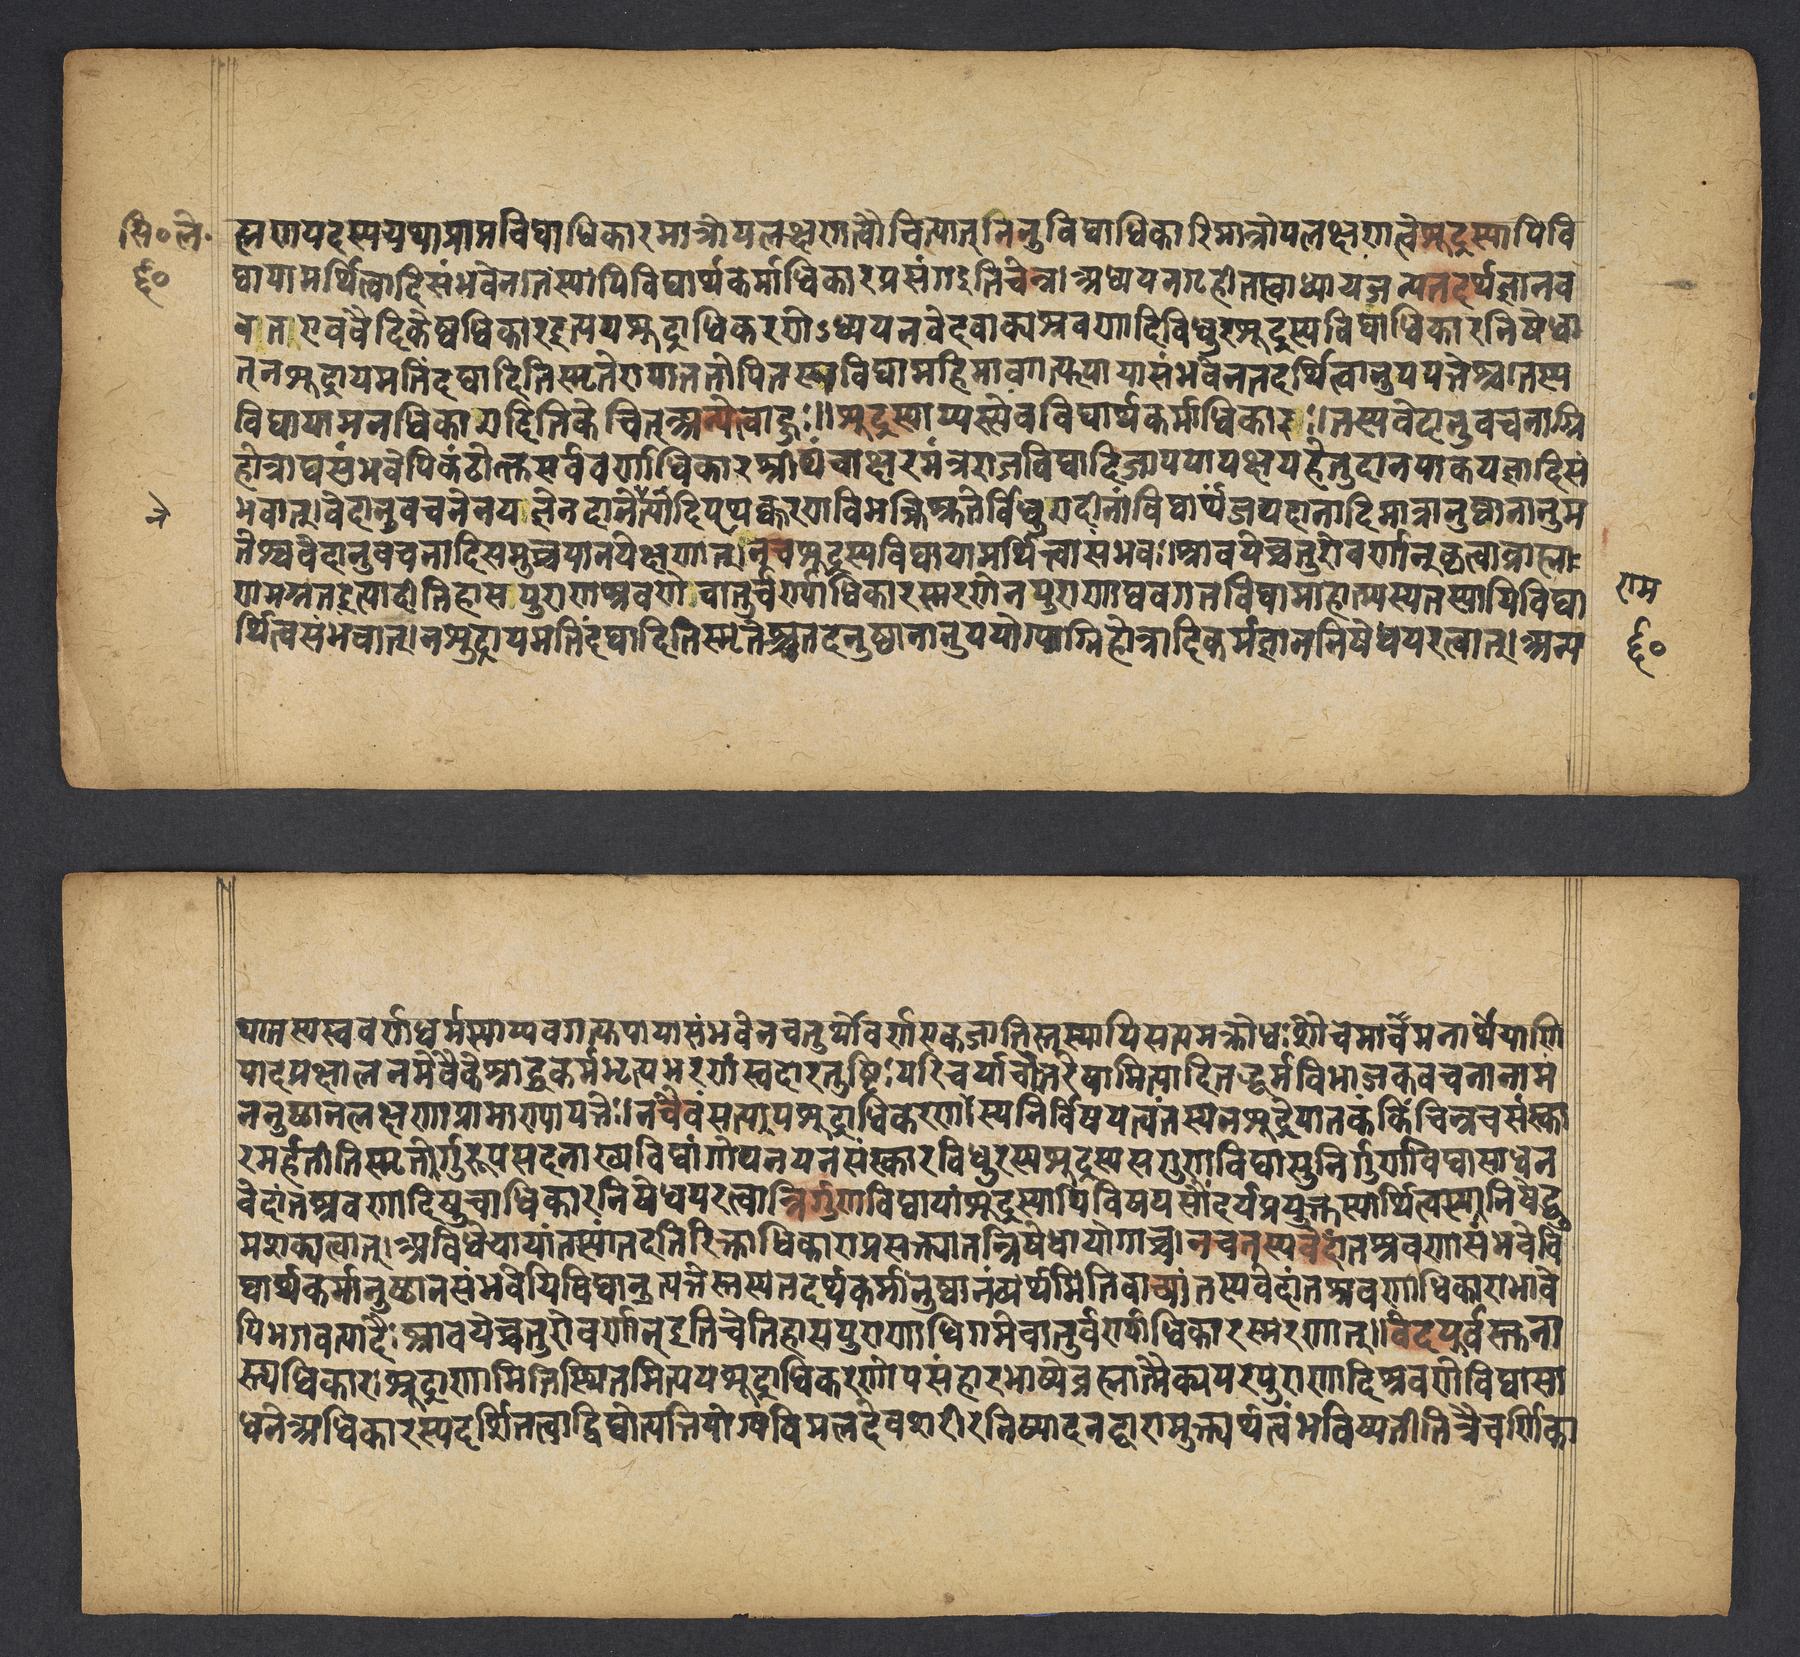 सि॰ ले॰
६०
ह्मणपदस्य यथाप्राप्तविद्याधिकारमात्रोपलक्षणत्वौचित्यात् ननु विद्याधिकारिमात्रोपलक्षणत्वे शूद्रस्यापि वि
द्यायामर्थित्वादिसंभवेन तस्यापि विद्यार्थकर्माधिकारप्रसंग इति चेन्न। अध्ययनगृहीतस्वाध्यायजन्यतदर्थज्ञानव
वत एव वैदिकेष्वधिकार इत्यपशूद्राधिकरणेऽध्ययनवेदवाक्यश्रवणादिविधुरशूद्रस्य विद्याधिकारनिषेधा
त् न शूद्राय मतिं दद्यादिति स्मृतेरापाततोपि तस्य विद्यामहिमावगत्युपायासंभवेन तदर्थित्वानुपपत्तेश्च तस्य
विद्यायामनधिकारादिति केचित् अन्येत्वाहुः॥ शूद्रस्याप्यस्त्येव विद्यार्थकर्माधिकारः॥ तस्य वेदानुवचनाग्नि
होत्राद्यसंभवेपि कंठोक्तसर्ववर्णाधिकारश्रीपंचाक्षरमंत्रराजविद्यादिजपपापक्षयहेतुदानपाकयज्ञादिसं
भवात्। वेदानुवचनेन यज्ञेन दानेनेत्यादि पृथक्करणविभक्तिश्रुतेर्विधुरादीनां विद्यार्थजपदानादिमात्रानुष्ठानानुम
ने
तेश्च वेदानुवचनादिसमुच्चयानपेक्षणात्। न च शूद्रस्य विद्यायामर्थित्वासंभवः। श्रावयेच्चतुरो वर्णान् कृत्वा ब्राह्म
णमग्रत इत्यादीतिहासपुराणश्रवणे चातुर्वर्ण्याधिकारस्मरणेन पुराणाद्यवगतविद्यामाहात्म्यस्य तस्यापि विद्या
र्थित्वसंभवात्। न शूद्राय मतिं दद्यादिति स्मृतेश्च तदनुष्ठानानुपयोग्यग्निहोत्रादिकर्मज्ञाननिषेधपरत्वात्। अन्य
राम
६०
था तस्य स्ववर्णधर्मस्याप्यवगत्युपायासंभवेन चतुर्थो वर्ण एकजातिस्तस्यापि सत्यमक्रोधः शौचमाचमनार्थे पाणि
पादप्रक्षालनमेवैके श्राद्धकर्म भृत्यभरणं स्वदारतुष्टिः परिचर्या चोत्तरेषामित्यादितद्धर्मविभाजकवचनानाम
ननुष्ठानलक्षणाप्रामाण्यापत्तेः। न चैवं सत्यपशूद्राधिकरणस्य निर्विषयत्वं तस्य न शूद्रे पातकं किंचिन्न च संस्का
रमर्हतीति स्मृतेर्गुरूपसदनाख्यविद्यांगोपनयनसंस्कारविधुरस्य शूद्रस्य सगुणविद्यासु निर्गुणविद्यासाधन
वेदांतश्रवणादिषु चाधिकारनिषेधपरत्वान्निर्गुणविद्यायां शूद्रस्यापि विषयसौंदर्यप्रयुक्तस्यार्थित्वस्य निषेद्धु
मशक्यत्वात्। अविधेयायां तस्यां तदतिरिक्ताधिकाराप्रसक्त्या तन्निषेधायोगाच्च। न च तस्य वेदांतश्रवणासंभवे वि
द्यार्थकर्मानुष्ठानसंभवेपि विद्यानुत्पत्तेस्तस्य तदर्थकर्मानुष्ठानं व्यर्थमिति वाच्यं तस्य वेदांतश्रवणाधिकाराभावे
पि भगवत्पादैः श्रावयेच्चतुरो वर्णान् इति चेतिहासपुराणाधिगमे चातुर्वर्ण्याधिकारस्मरणात्॥ वेदपूर्वस्तु ना
स्त्यधिकारः शूद्राणामिति स्थितमित्यपशूद्राधिकरणोपसंहारभाष्ये ब्रह्मात्मैक्यपरपुराणादिश्रवणे विद्यासा
धने अधिकारस्य दर्शितत्वाद्विद्योत्पत्तियोग्यविमलदेवशरीरनिष्पादनद्वारा मुक्त्यर्थत्वं भविष्यतीति त्रैवर्णिका